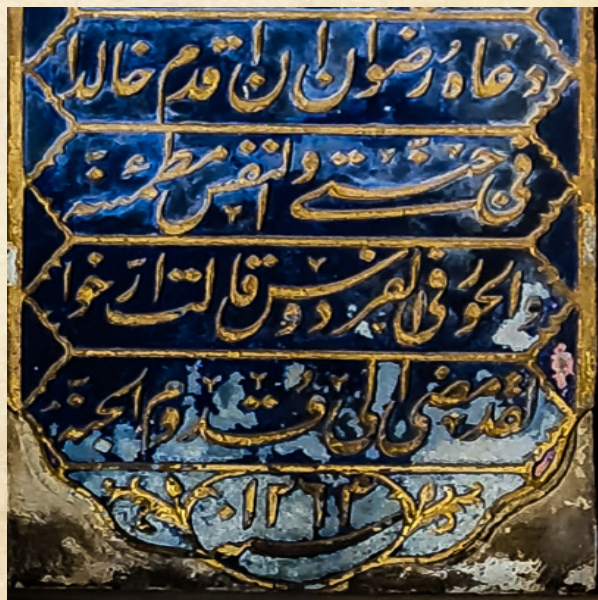 دعاه رضوان ان اقدم خالدا
في جنتي والنفس مطمئنه
والحور في الفردوس قالت ارخوا
لقد مضى الى قدوم الجنه
١٢٦٣